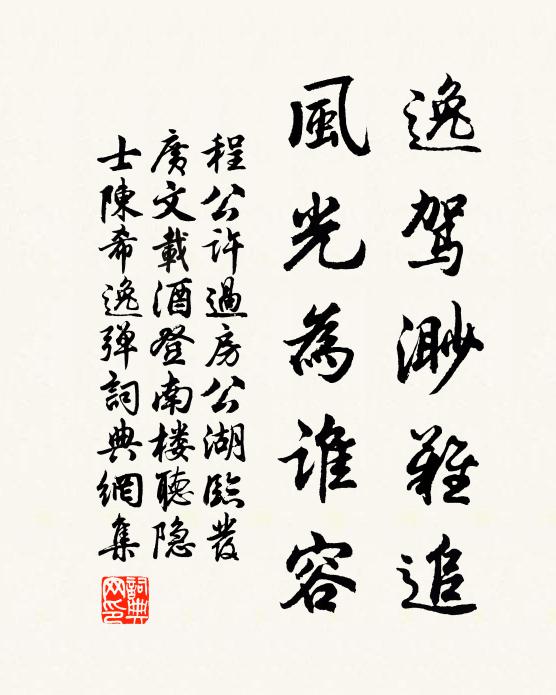 逸驾渺難追
風光為谁容
程公许過房公湖臨發
廣文載酒登南楼聽隐
士陳希逸弹詞典網集
詞典
网印